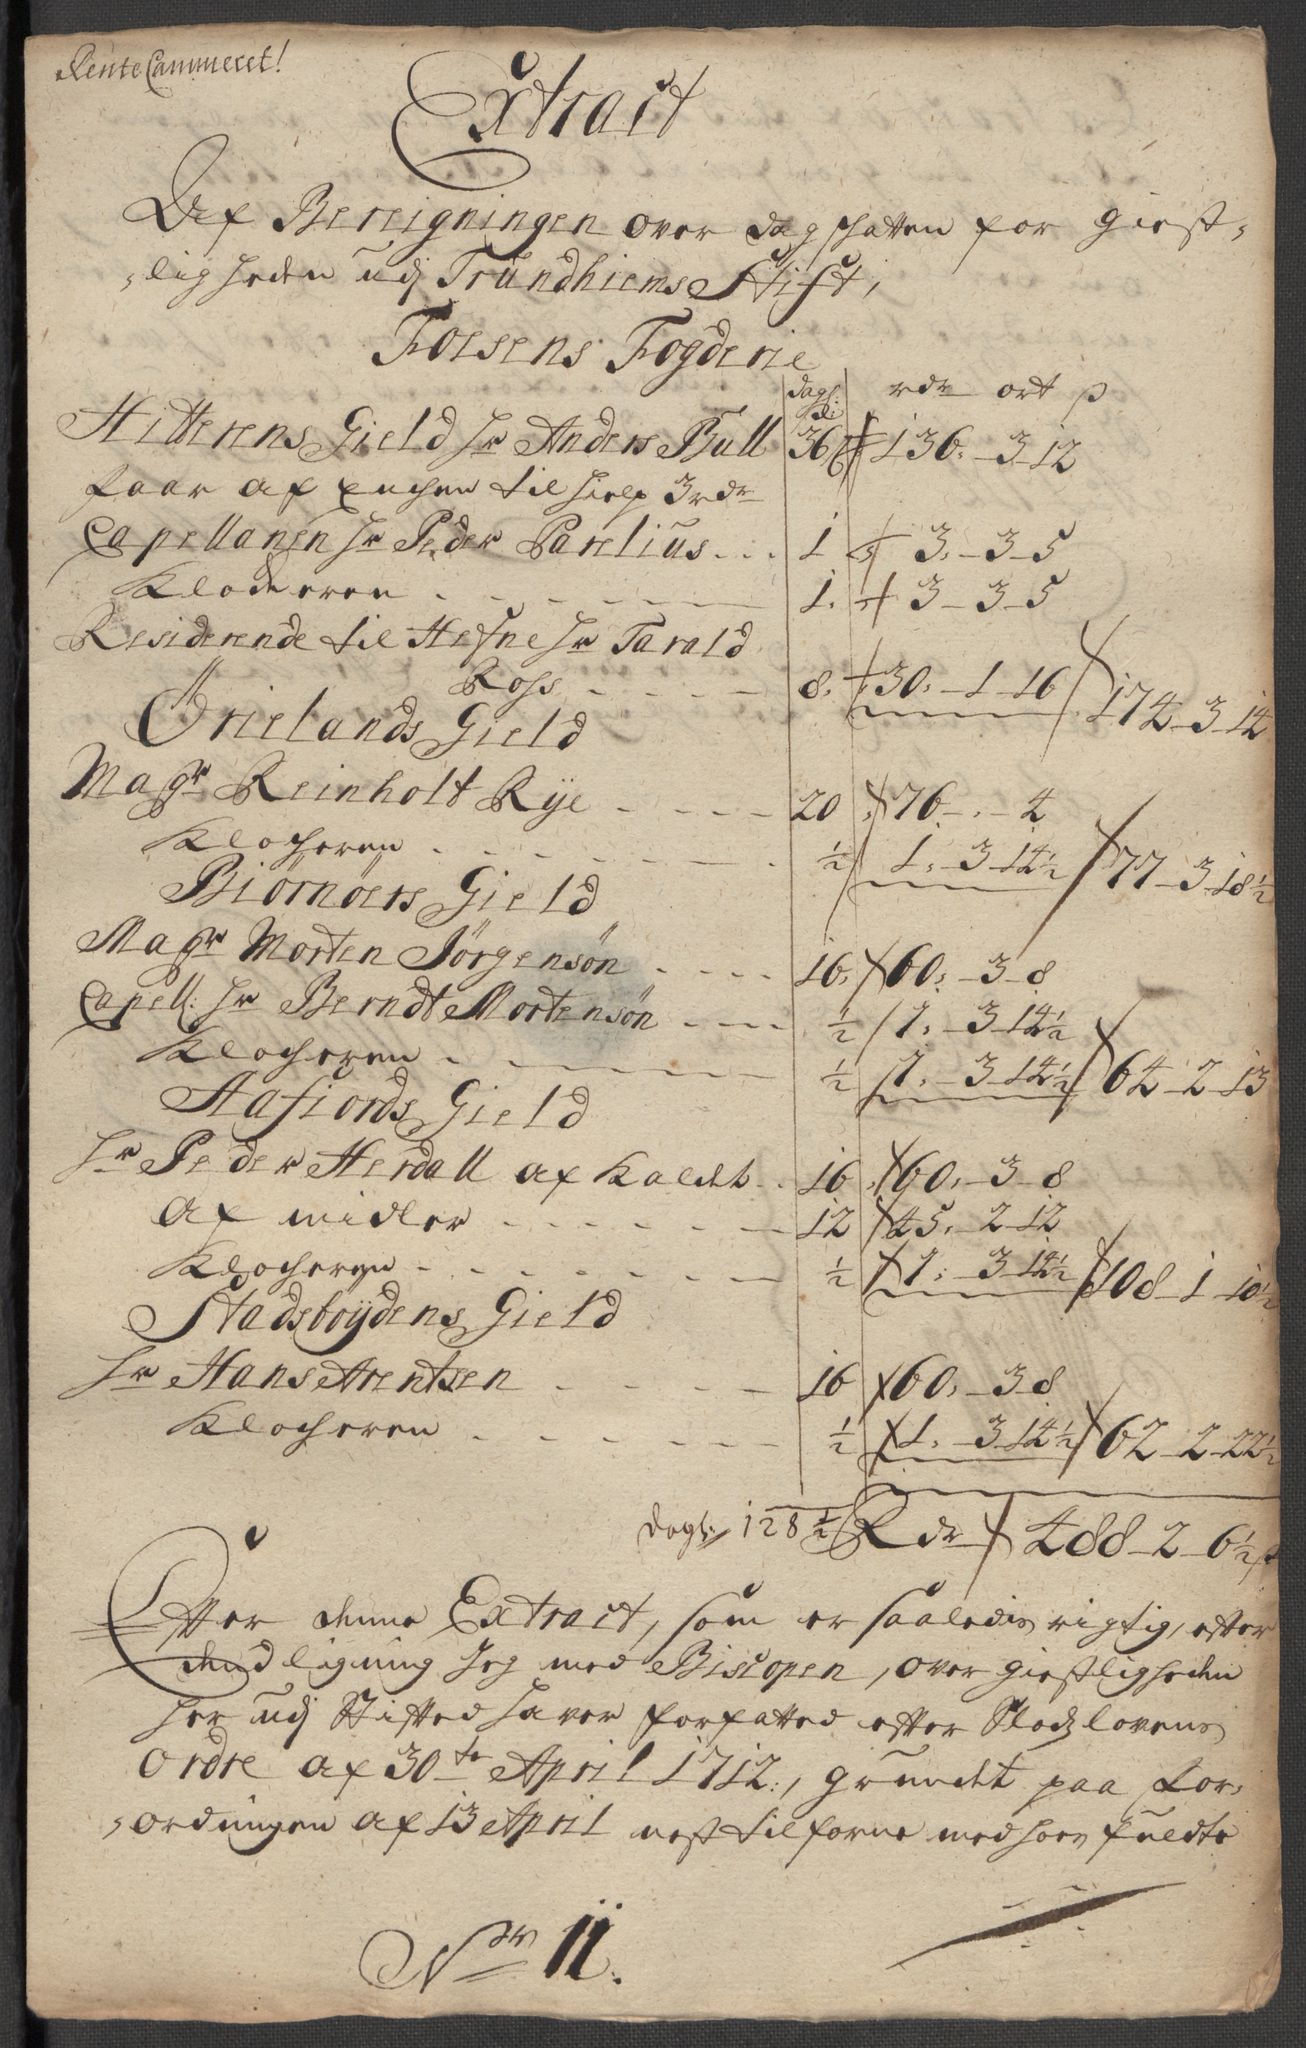 Rente Cammeret!
Extract
Af Bereigningen over dagskatten for giest-
-ligheden udj Trundhiems Stift,
Foesens Fogderie
dagl: rdr ort ß
Hitterens Gield Hr Anders Bull 36 136. 3 12
faar af Enchen til hielp 3 rdr
Capellanen Hr Peder Parelius 1 3. 3 5
Klocheren 1. 3 3 5
Residerende til Hefne Hr Tarald
Ross 8. 30. 1 16 174 3 14
Ørielands Gield
Magr Reinholt Rÿe 20 76 . 4
Klocheren ½ 1. 3 14½ 77 3 18½
Biørnøers Gield
Magr Morten Jørgensøn 16. 60. 3 8
Capell: Hr Berndt Mortensøn ½ 1. 3 14½
Klocheren ½ 1. 3 14½ 64 2 13
Aafiords Gield
Hr Peder Herdall af Kaldet 16 60. 3 8
af midler 12 45. 2 12
Klocheren ½ 1. 3 14½ 108 1 10½
Stadsboÿdens Gield
Hr Hans Arentsen 16 60. 3 8
Klocheren ½ 1. 3 14½ 62 2 22½
dagl: 128½ Rdr 488 2 6½ ß
Efter denne Extract, som er saaledis rigtig, efter
dend ligning Jeg med Biscopen, over giestligheden
her udj Stifted haver forfatted efter Slodzlovens
Ordre af 30te April 1712., grundet paa for-
-ordningen af 13 April nest tilforne med hoes fuldte
Nr 11.